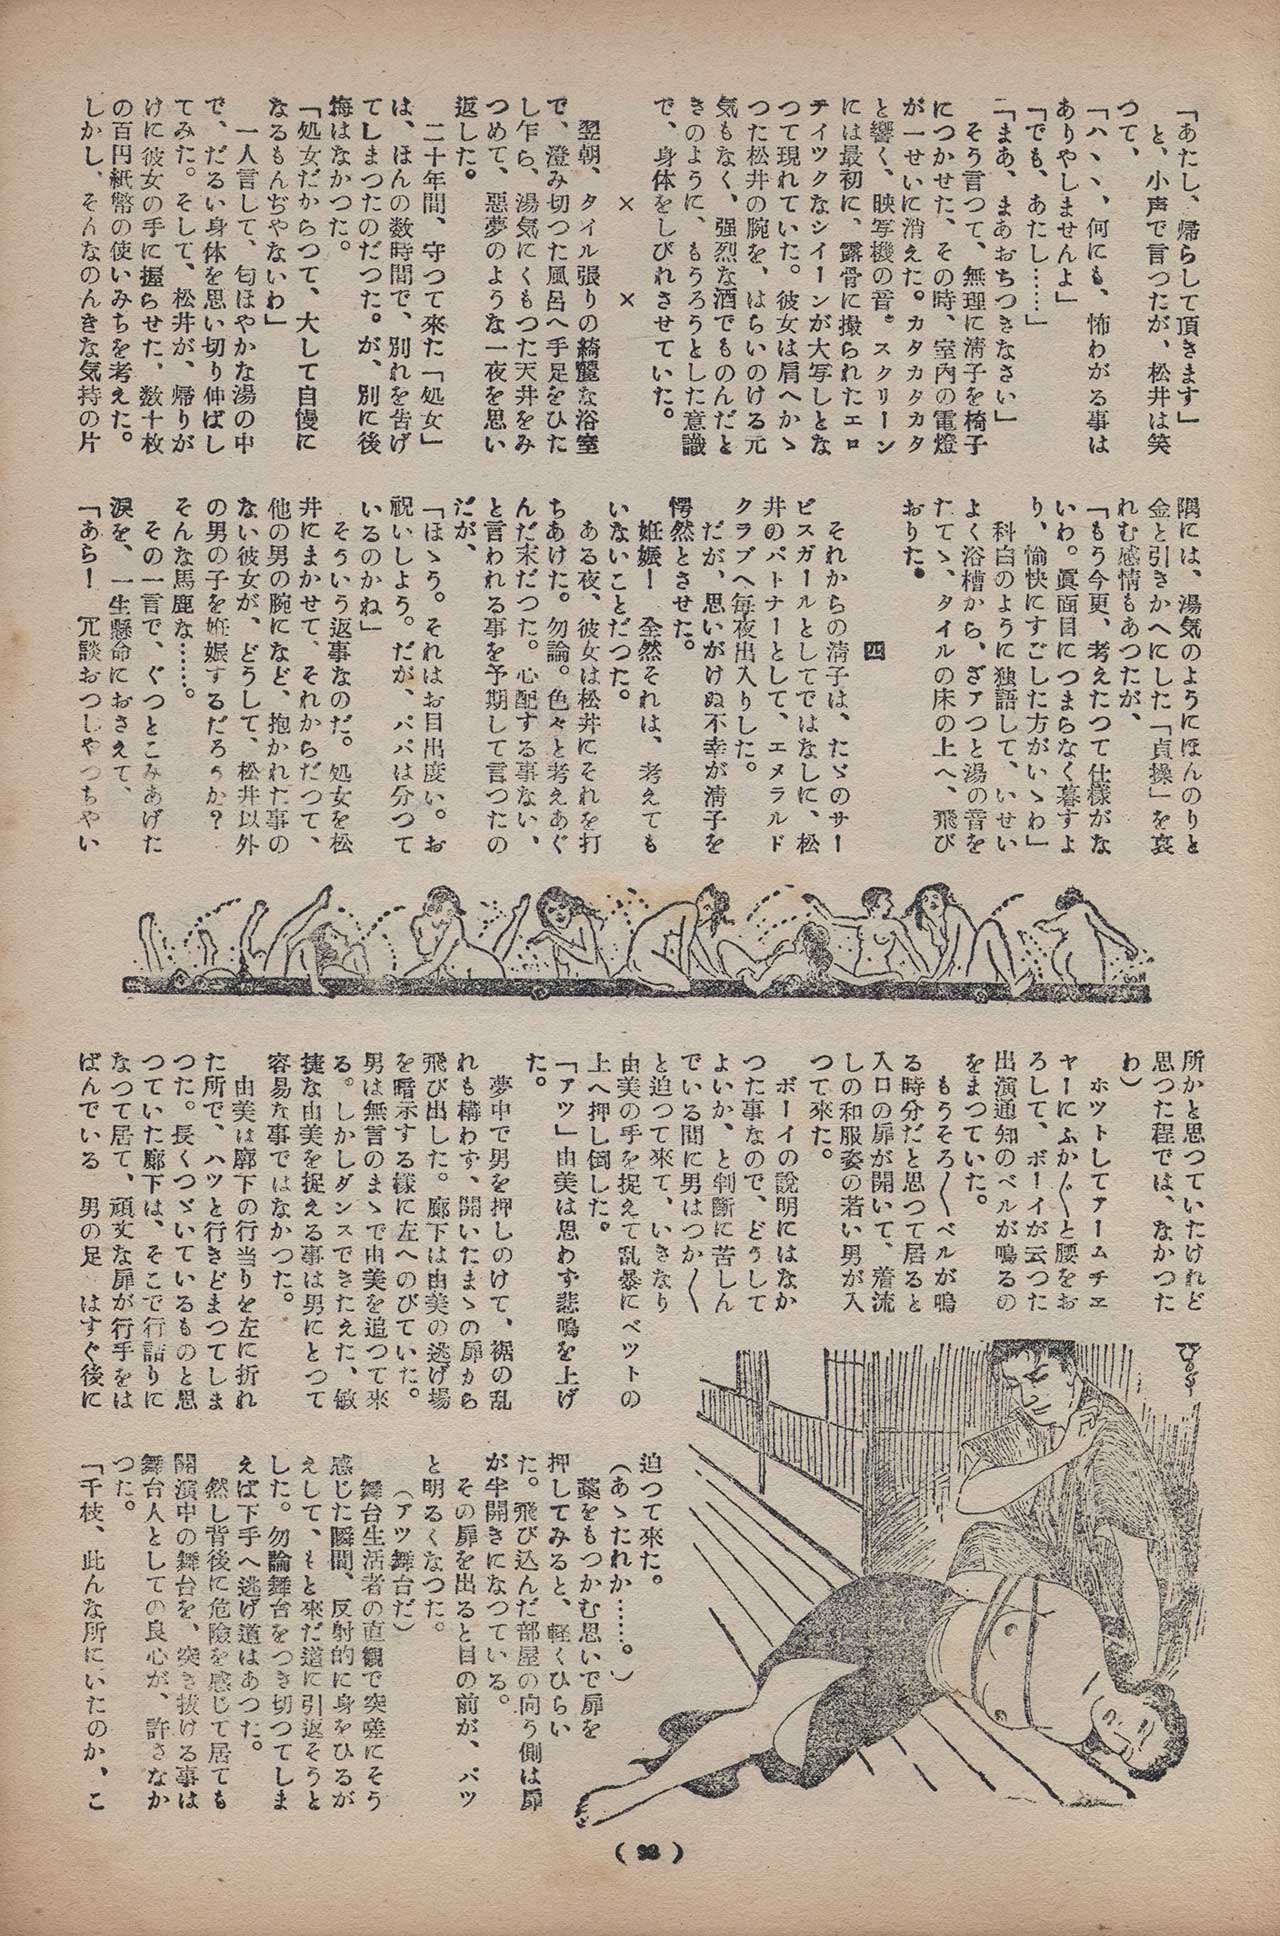 「あたし、帰らして頂きます」
と、小声で言つたが、松井は笑
つて、
「ハヽヽ、何にも、怖わがる事は
ありやしませんよ」
「でも、あたし……」
「まあ、まあおちつきなさい」
そう言つて、無理に淸子を椅子
につかせた、その時、室內の電燈
が一せいに消えた。カタカタカタカタ
と響く、映写機の音。スクリーン
には最初に、露骨に撮られたエロ
チイツクなシイーンが大写しとな
つて現れていた。彼女は肩へかゝ
つた松井の腕を、はらいのける元
気もなく、強烈な酒でものんだと
きのように、もうろうとした意識
で、身体をしびれさせていた。
× ×
翌朝、タイル張りの綺麗な浴室
で、澄み切つた風呂へ手足をひた
し乍ら、湯気にくもつた天井をみ
つめて、惡夢のような一夜を思い
返した。
二十年間、守つて來た「処女」
は、ほんの数時間で、別れを告げ
てしまつたのだつた。が、別に後
悔はなかつた。
「処女だからつて、大して自慢に
なるもんぢやないわ」
一人言して、匂ほやかな湯の中
で、だるい身体を思い切り伸ばし
てみた。そして、松井が、帰りが
けに彼女の手に握らせた、数十枚
の百円紙幣の使いみちを考えた。
しかし、そんなのんきな気持の片
隅には、湯気のようにほんのりと
金と引きかへにした「貞操」を哀
れむ感情もあつたが、
「もう今更、考えたつて仕様がな
いわ。眞面目につまらなく暮すよ
り、愉快にすごした方がいゝわ」
科白のように独語して、いせい
よく浴槽から、ざアつと湯の音を
たてゝ、タイルの床の上へ、飛び
おりた。
四
それからの淸子は、たゞのサー
ビスガールとしてではなしに、松
井のパトナーとして、エメラルド
クラブへ毎夜出入りした。
だが、思いがけぬ不幸が淸子を
愕然とさせた。
妊娠！　全然それは、考えても
いないことだつた。
ある夜、彼女は松井にそれを打
ちあけた。勿論。色々と考えあぐ
んだ末だつた。心配する事ない、
と言われる事を予期して言つたの
だが、
「ほゝう。それはお目出度い。お
祝いしよう。だが、パパは分つて
いるのかね」
そういう返事なのだ。処女を松
井にまかせて、それからだつて、
他の男の腕になど、抱かれた事の
ない彼女が、どうして、松井以外
の男の子を妊娠するだろうか？
そんな馬鹿な……。
その一言で、ぐつとこみあげた
淚を、一生懸命におさえて、
「あら！　冗談おつしやつちやい
所かと思つていたけれど
思つた程では、なかつた
わ）
ホツトしてアームチエ
ヤーにふか〳〵と腰をお
ろして、ボーイが云つた
出演通知のベルが鳴るの
をまつていた。
もうそろ〳〵ベルが鳴
る時分だと思つて居ると
入口の扉が開いて、着流
しの和服姿の若い男が入
つて来た。
ボーイの說明にはなか
つた事なので、どうして
よいか、と判断に苦しん
でいる間に男はつか〳〵
と迫つて来て、いきなり
由美の手を捉えて乱暴にベツトの
上へ押し倒した。
「アツ」由美は思わず悲鳴を上げ
た。
夢中で男を押しのけて、裾の乱
れも構わず、開いたまゝの扉から
飛び出した。廊下は由美の逃げ場
を暗示する様に左へのびていた。
男は無言のまゝで由美を追つて来
る。しかしダンスできたえた、敏
捷な由美を捉える事は男にとつて
容易な事ではなかつた。
由美は廊下の行当りを左に折れ
た所で、ハツと行きどまつてしま
つた。長くつゞいているものと思
つていた廊下は、そこで行詰りに
なつて居て、頑丈な扉が行手をは
ばんでいる　男の足　はすぐ後に
迫つて来た。
（あゝたれか……。）
藁をもつかむ思いで扉を
押してみると、軽くひらい
た。飛び込んだ部屋の向う側は扉
が半開きになつている。
その扉を出ると目の前が、パツ
と明るくなつた。
（アツ舞台だ）
舞台生活者の直観で突嗟にそう
感じた瞬間、反射的に身をひるが
えして、もと来だ道に引返そうと
した。勿論舞台をつき切つてしま
えば下手へ逃げ道はあつた。
然し背後に危険を感じて居ても
開演中の舞台を、突き抜ける事は
舞台人としての良心が、許さなか
つた。
「千枝、此んな所にいたのか、こ